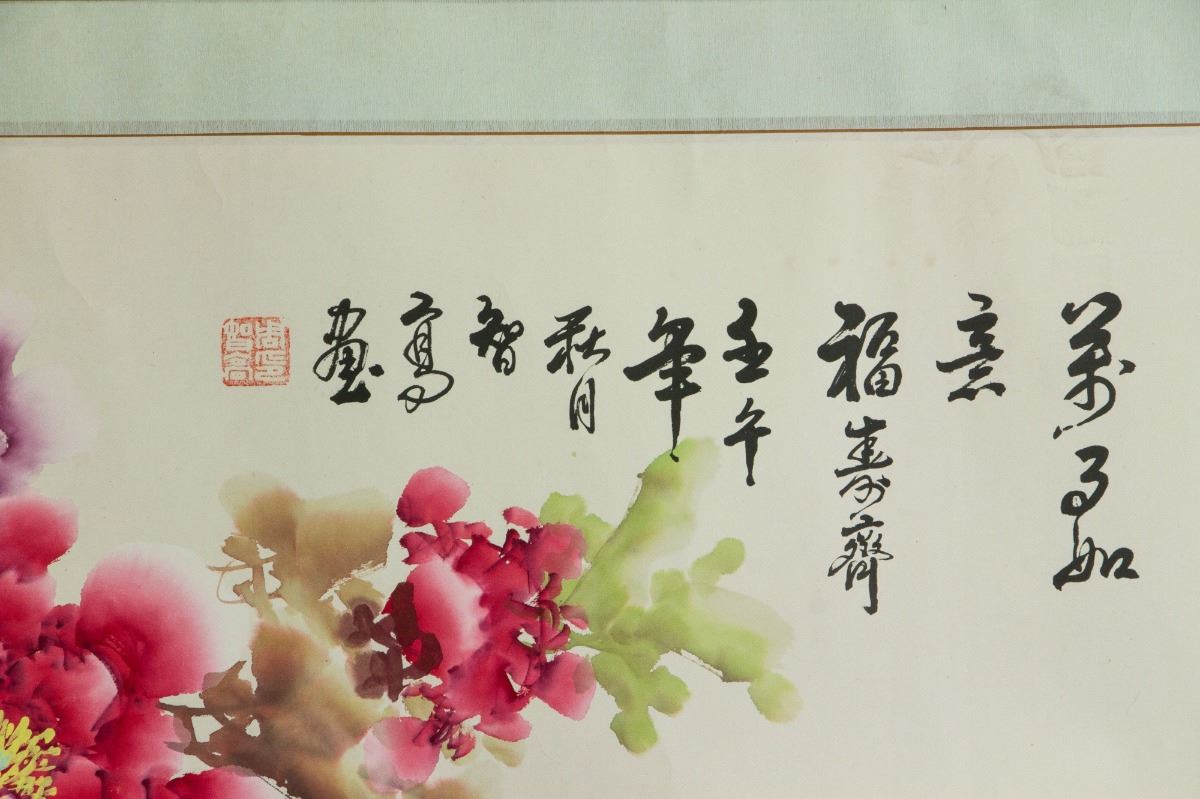 萬事如
意
福壽齊
壬午
年
秋月
智
高
畫